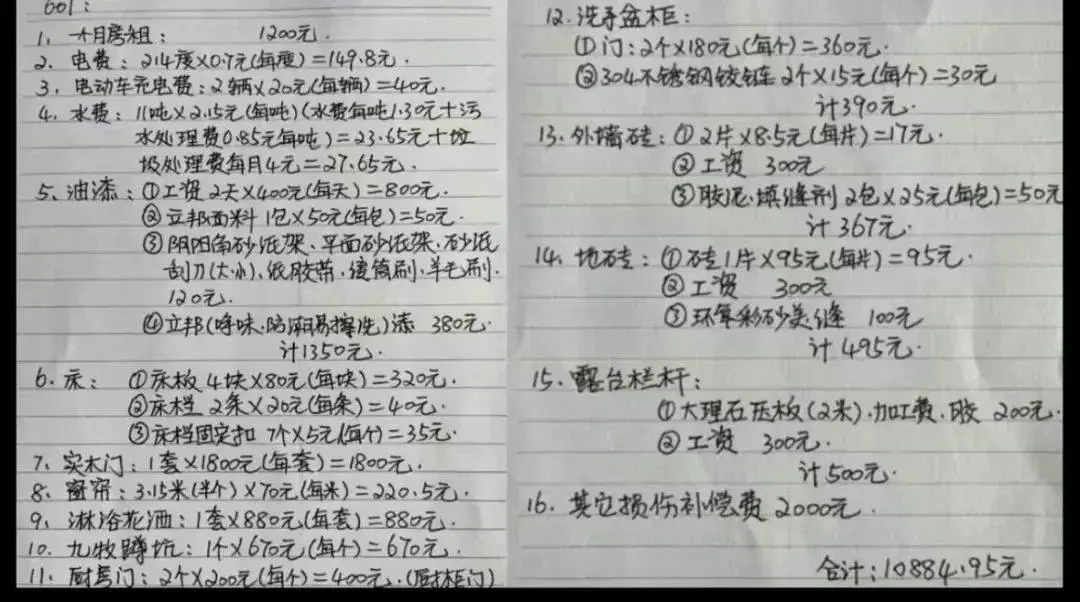 601：
1、一个月房租：1200元.
2、电费：214度×0.7元(每度)=149.8元.
3、电动车充电费：2辆×20元(每辆)=40元.
4、水费：11吨×2.15元(每吨)(水费每吨1.30元+污
水处理费0.85元每吨)=23.65元+垃
圾处理费每月4元=27.65元.
5、油漆：①工资 2天×400元(每天)=800元.
②立邦面料 1包×50元(每包)=50元.
③阴阳角砂纸架、平面砂纸架、砂纸
刮刀(大小)、纸胶带、滚筒刷、羊毛刷.
120元.
④立邦(净味.防潮易擦洗)漆 380元.
计1350元.
6、床：①床板 4块×80元(每块)=320元.
②床档 2条×20元(每条)=40元.
③床档固定扣 7个×5元(每个)=35元.
7、实木门：1套×1800元(每套)=1800元.
8、窗帘：3.15米(半个)×70元(每米)=220.5元.
9、淋浴花洒：1套×880元(每套)=880元.
10、九牧蹲坑：1个×670元(每个)=670元.
11、厨房门：2个×200元(每个)=400元.(厨柜门)
12.洗手盆柜：
①门：2个×180元(每个)=360元.
②304不锈钢铰链 2个×15元(每个)=30元
计390元.
13.外墙砖：①2片×8.5元(每片)=17元.
②工资 300元
③胶泥.填缝剂 2包×25元(每包)=50元
计367元.
14.地砖：①砖1片×95元(每片)=95元.
②工资 300元
③环氧彩砂美缝 100元
计495元.
15.露台栏杆：
①大理石压板(2米).加工费.胶 200元.
②工资 300元.
计500元.
16.其它损伤补偿费 2000元.
合计：10884.95元.